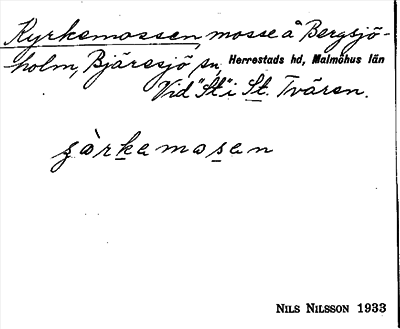 Kyrkemossen, mosse å Bergsjö-
holm, Bjäresjö sn, Herrestads hd, Malmöhus län
Vid "St" i St. Tvären.
kemosen
NILS NILSSON 1933